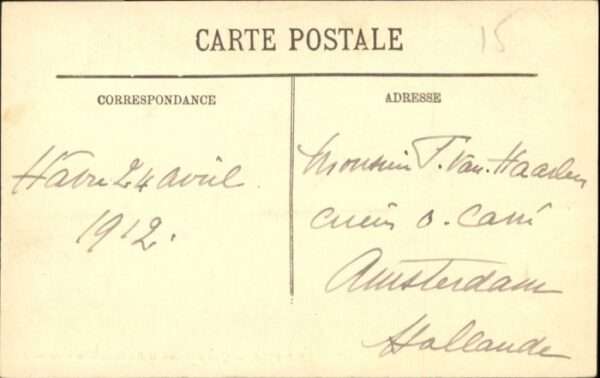 CARTE POSTALE
15
CORRESPONDANCE
ADRESSE
Havre 24 avril
1912.
Monsieur T. Van. Haarlem
O. Carré
Amsterdam
Hollande